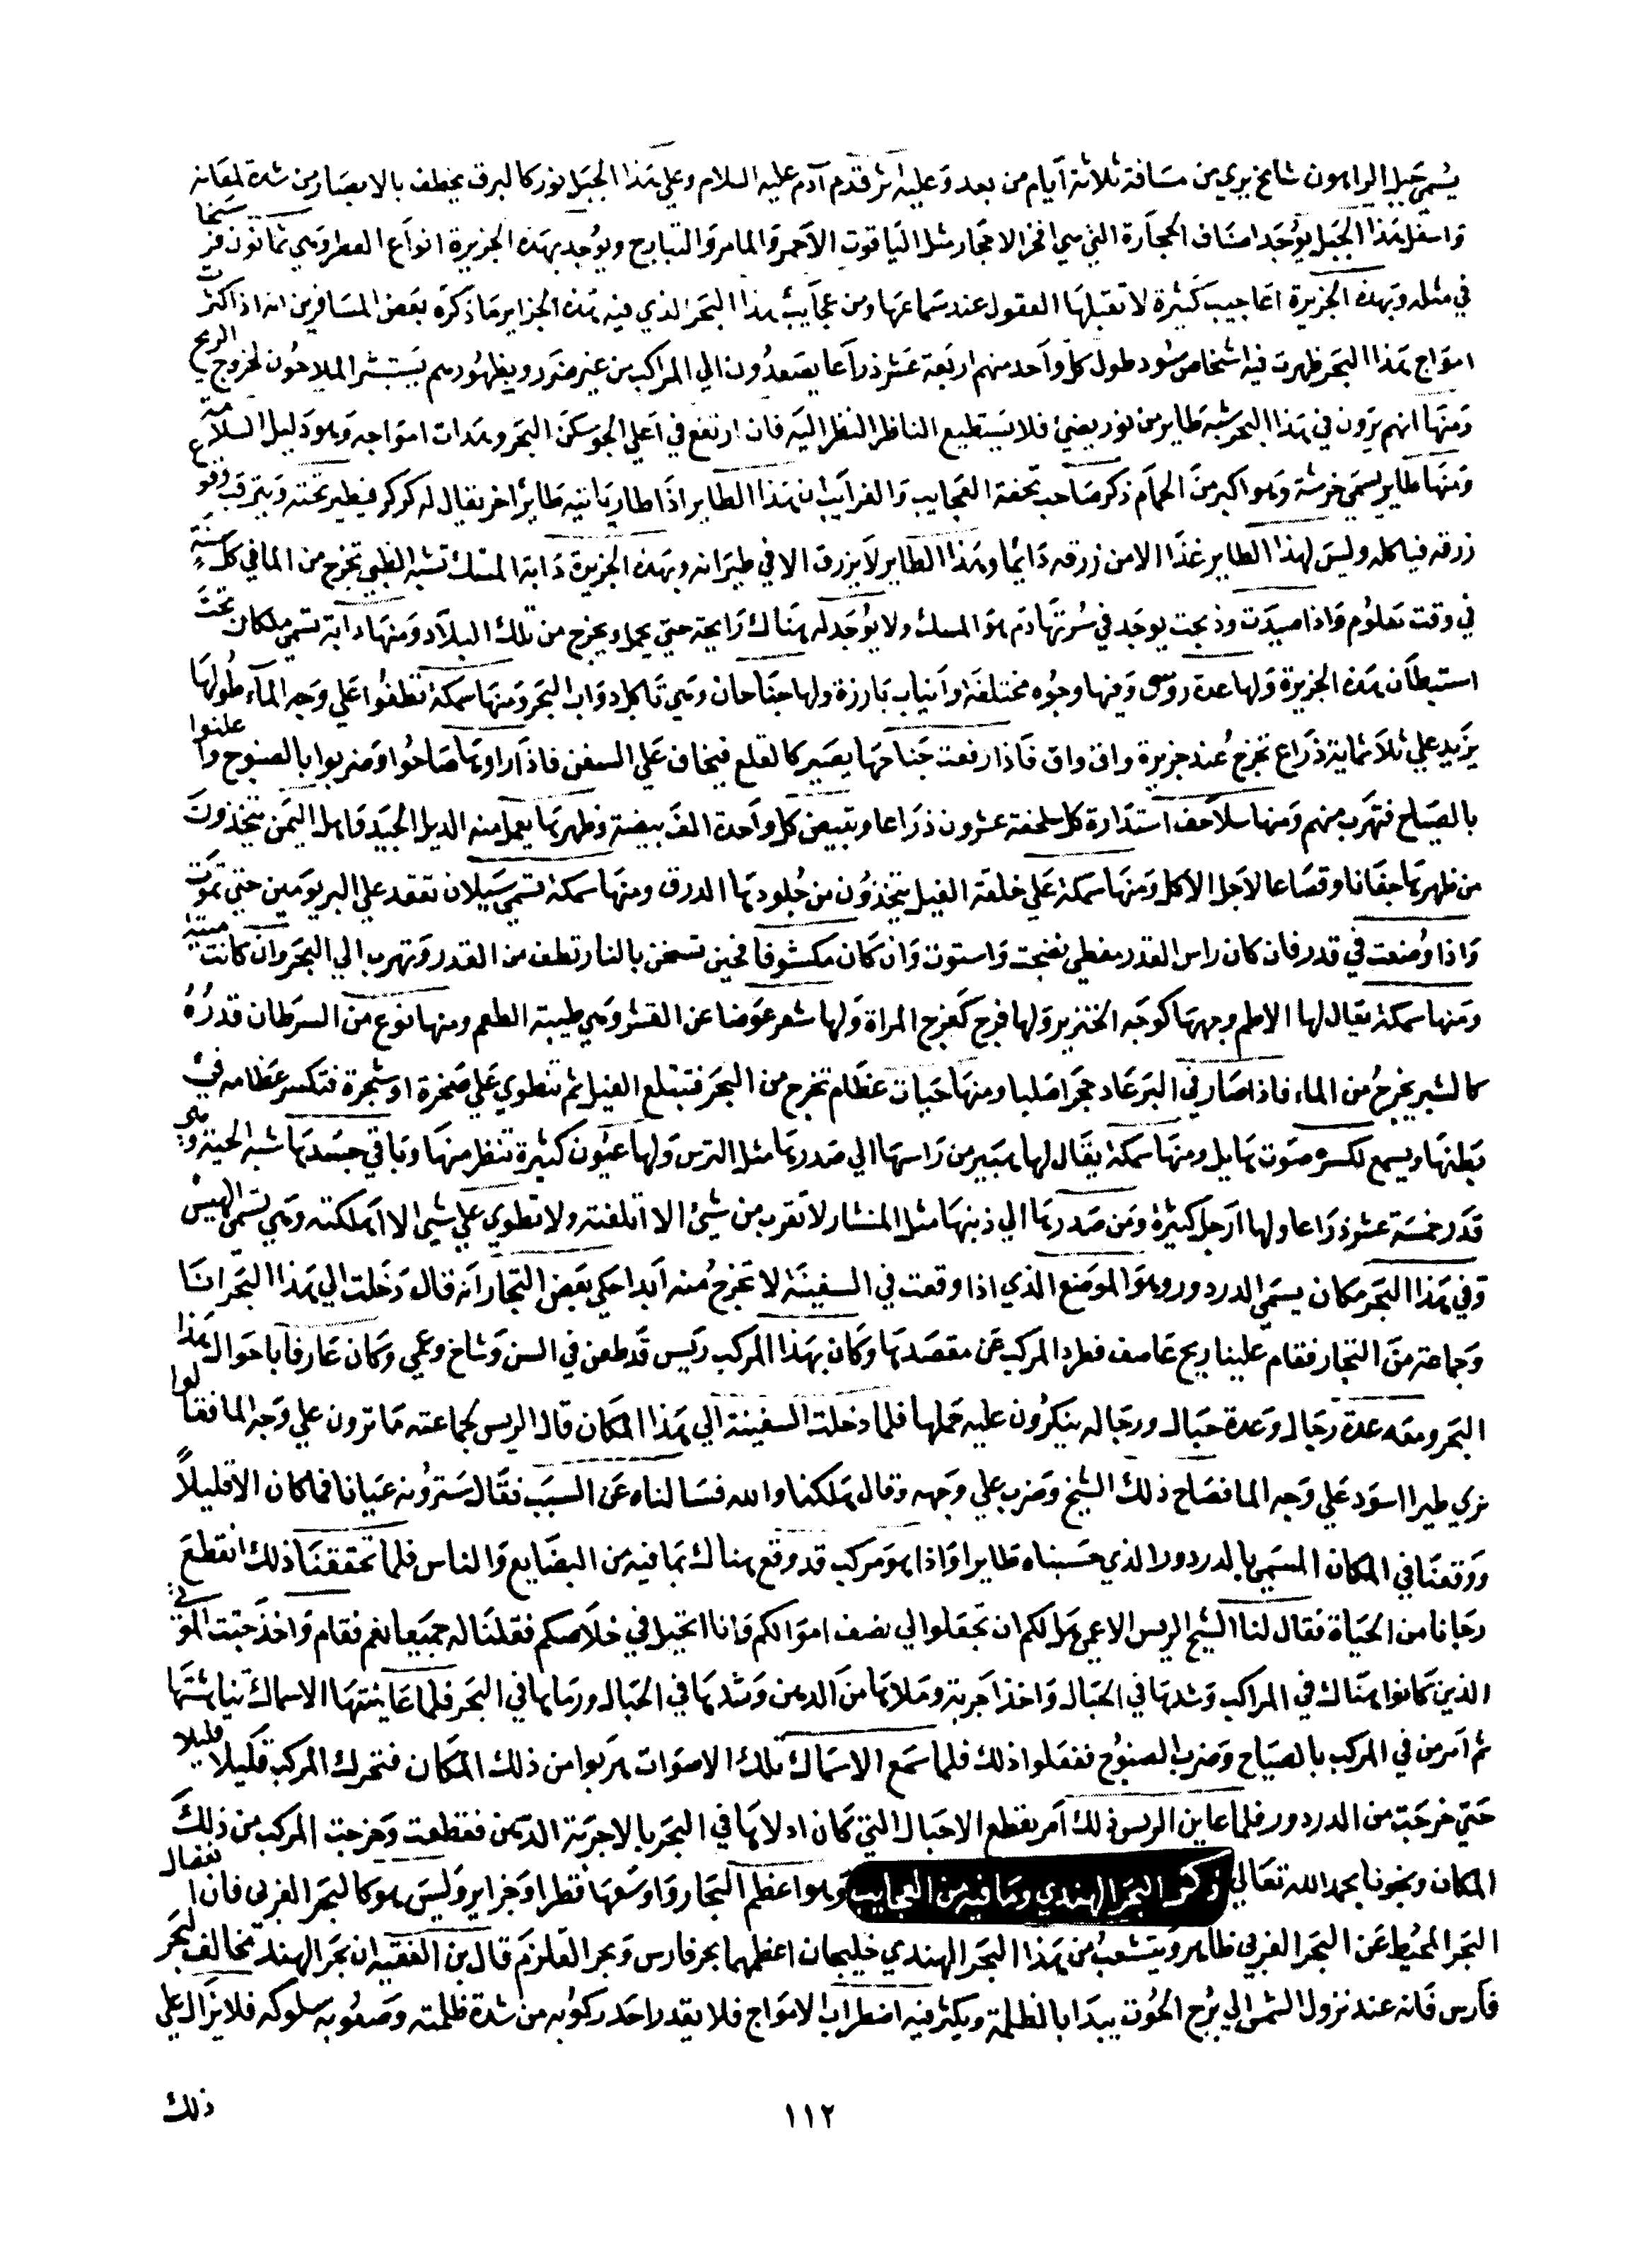 يسمى جبل الراهون شامخ يري من مسافة ثلاثة أيام من بعد وعليه اثر قدم آدم عليه السلام وعلي هذا الجبل نور كالبرق يخطف بالابصار من شدة لمعانه
واسفل هذا الجبل يوجد اصناف الحجارة التي هي افخر الاحجار مثل الياقوت الأحمر والمامر والتبادج ويوجد بهذه الجزيرة انواع العطر وهي ثمانون فرسخا
في مثله وبهذه الجزيرة اعاجيب كثيرة لا تقبلها العقول عند سماعها ومن عجايب هذا البحر الذي فيه هذه الجزاير ما ذكره بعض المسافرين انه اذا كثرت
امواج هذا البحر ظهرت فيه اشخاص سود طول كل واحد منهم اربعة عشر ذراعا يصعدون الي المراكب من غير ضرر وبظهورهم يستبشر الملاحون لخروج الريح
ومنها انهم يرون في هذا البحر شبه طاير من نور يضئ فلا يستطيع الناظر النظر اليه فان ارتفع في اعلي الجو سكن البحر وهدات امواجه وهو دليل السلامة
ومنها طاير يسمى خرشة وهو اكبر من الحمام ذكر صاحب تحفة العجايب والغرايب ان هذا الطاير اذا طار ياتيه طاير اخر يقال له كركر فيطير تحته ويترقب وقوع
زرقه فياكله وليس لهذا الطاير غذا الا من زرقه دائما وهذا الطاير لا يزرق الا في طيرانه وبهذه الجزيرة دابة المسك تشبه الظبي تخرج من الما في كل سنة
في وقت معلوم واذا صيدت وذبحت يوجد في سرتها دم هو المسك ولا يوجد له هناك رايحة حتي يحمل ويخرج من تلك البلاد ومنها دابة تسمى ملكان تحت
استيطان هذه الجزيرة ولها عدة روس وفيها وجوه مختلفة وانياب بارزة ولها جناحان وهي تاكل دواب البحر ومنها سمكة تطفوا علي وجه المآء طولها
يزيد علي ثلاثماية ذراع تخرج عند جزيرة واق واق فاذا رفعت جناحها يصير كالقلع فيخاف علي السفن فاذا راوها صاحوا وضربوا بالصنوج واعلنوا
بالصياح فتهرب منهم ومنها سلاحف استدارة كل سلحفة عشرون ذراعا وتبيض كل واحدة الف بيضة وظهرها يعمل منه الذبل الجيد واهل اليمن يتخذون
من ظهرها جفانا وقصاعا لاجل الاكل ومنها سمكة علي خلقة الفيل يتخذون من جلودها الدرق ومنها سمكة تسمى سيلان تقعد علي البر يومين حتي تموت
واذا وضعت في قدر فان كان راس القدر مغطي نضجت واستوت وان كان مكشوفا فحين تسخن بالنار تطف من القدر وتهرب الي البحر وان كانت ميتة
ومنها سمكة يقال لها الاطم وجهها كوجه الخنزير ولها فرج كفرج المراة ولها شعر عوضا عن القشر وهي طيبة الطعم ومنها نوع من السرطان قدره
كالشبر يخرج من الماء فاذا صار في البر عاد حجرا صلبا ومنها حيات عظام تخرج من البحر فتبتلع الفيل ثم تنطوي علي صخرة او شجرة فتكسر عظامه في
بطنها ويسمع لكسره صوت هايل ومنها سمكة يقال لها هبير من راسها الي صدرها مثل الترس ولها عيون كثيرة تنظر منها وباقي جسدها شبه الحية وهي
قدر خمسة عشر ذراعا ولها ارجل كثيرة ومن صدرها الي ذنبها مثل المنشار لا تقرب من شئ الا اتلفته ولا تطوي علي شئ الا اهلكته وهي تسمى الهبش
وفي هذا البحر مكان يسمى الدردور وهو الموضع الذي اذا وقعت في السفينة لا تخرج منه ابدا حكي بعض التجار انه قال دخلت الي هذا البحر انا
وجماعة من التجار فقام علينا ريح عاصف فطرد المركب عن مقصدها وكان بهذا المركب رئيس قد طعن في السن وشاخ وعمي وكان عارفا باحوال هذا
البحر ومعه عدة رجال وعدة حبال ورجاله ينكرون عليه حملها فلما دخلت السفينة الي هذا المكان قال الريس لجماعته ما ترون علي وجه الما فقالوا
نري طيرا اسود علي وجه الما فصاح ذلك الشيخ وضرب علي وجهه وقال هلكنا والله فسالناه عن السبب فقال سترونه عيانا فما كان الا قليلاً
ووقعنا في المكان المسمى بالدردور الذي حسبناه طايرا واذا هو مركب قد وقع هناك بما فيه من البضايع والناس فلما تحققنا ذلك انقطع
رجانا من الحياة فقال لنا الشيخ الريس الاعمى هل لكم ان تجعلوا لي نصف اموالكم وانا اتحيل في خلاصكم فقلنا له جميعا نعم فقام واخذ جثث الموتي
الذين كانوا هناك في المراكب وشدها في الحبال واخذ اجربة وملاها من الدهن وشدها في الحبال ورماها في البحر فلما عاينتها الاسماك تناهشتها
ثم امر من في المركب بالصياح وضرب الصنوج ففعلوا ذلك فلما سمع الاسماك تلك الاصوات هربوا من ذلك المكان فتحرك المركب قليلا قليلا
حتي خرجت من الدردور فلما عاين الريس ذلك امر بقطع الاحبال التي كان ادلاها في البحر بالاجربة الدهن فقطعت وخرجت المركب من ذلك
المكان ونجونا بحمد الله تعالي ذكر البحر الهندي وما فيه من العجايب وهو اعظم البحار واوسعها قطرا وجزاير وليس هو كالبحر الغربي فان اتصال
البحر المحيط عن البحر الغربي ظاهر ويتشعب من هذا البحر الهندي خليجان اعظمهما بحر فارس وبحر القلزم قال بن الفقيه ان بحر الهند تخالف لبحر
فارس فانه عند نزول الشمس الي برج الحوت يبدا بالظلمة ويكثر فيه اضطراب الامواج فلا يقدر احد ركوبه من شدة ظلمته وصعوبة سلوكه فلا يزال علي
ذلك
١١٢